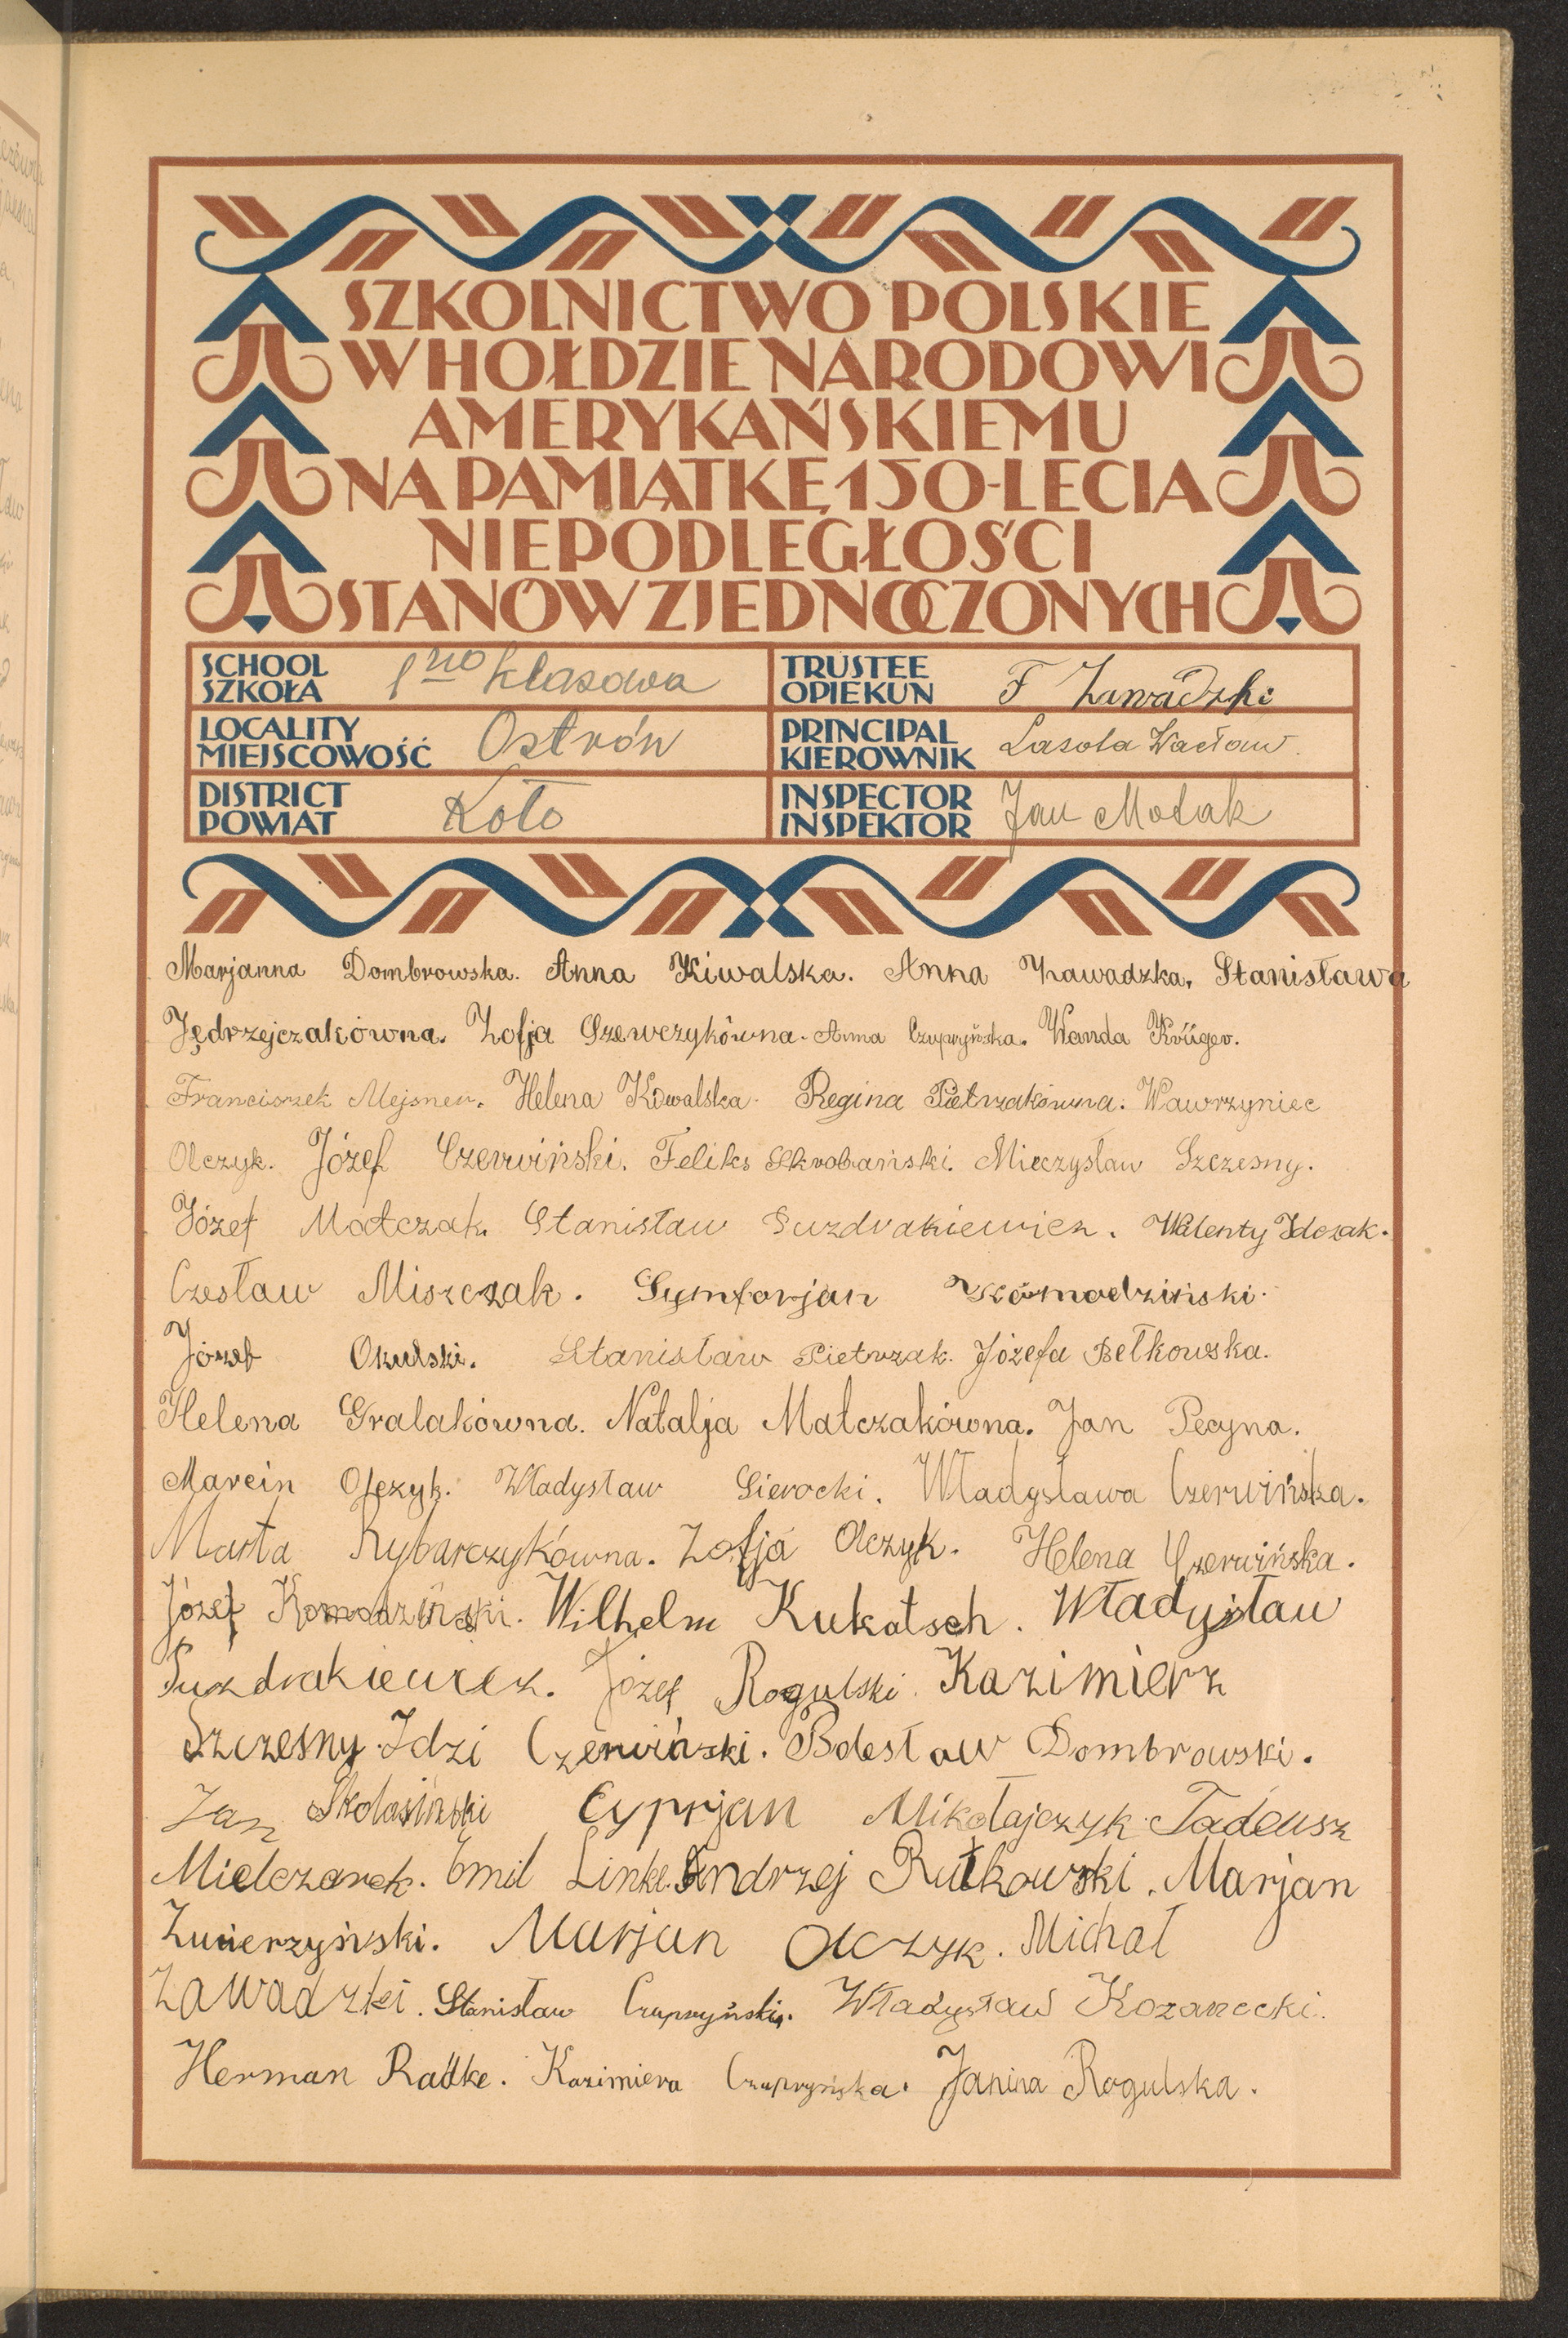 SZKOLNICTWO POLSKIE
W HOŁDZIE NARODOWI
AMERYKAŃSKIEMU
NA PAMIĄTKĘ 150-LECIA
NIEPODLEGŁOŚCI
STANÓW ZJEDNOCZONYCH
SCHOOL SZKOŁA 1no klasowa
TRUSTEE OPIEKUN F Zawadzki
LOCALITY MIEJSCOWOŚĆ Ostrów
PRINCIPAL KIEROWNIK Lasota Wacław.
DISTRICT POWIAT Koło
INSPECTOR INSPEKTOR Jan Modak
Marjanna Dombrowska. Anna Kiwalska. Anna Zawadzka, Stanisława
Jędrzejczakówna. Zofja Szewczykówna. Anna Czupryńska. Wanda Krüger.
Franciszek Mejsner. Helena Kowalska. Regina Pietrzakówna. Wawrzyniec
Olczyk. Józef Czerwiński. Feliks Skrobański. Mieczysław Szczesny.
Józef Matczak. Stanisław Suzdrakiewicz. Walenty Idczak.
Czesław Miszczak. Symforjan Komodziński.
Józef Okulski. Stanisław Pietrzak. Józefa Bełkowska.
Helena Gralakówna. Natalja Matczakówna. Jan Pecyna.
Marcin Olczyk. Władysław Sierocki. Władysława Czerwińska.
Marta Rybarczykówna. Zofja Olczyk. Helena Czerwińska.
Józef Komodziński. Wilhelm Kukatsch. Władysław
Suzdrakiewicz. Józef Rogulski. Kazimierz
Szczesny. Idzi Czerwiński. Bolesław Dombrowski.
Jan Skolasiński Cyprjan Mikołajczyk. Tadeusz
Mielczarek. Emil Linke. Andrzej Rutkowski. Marjan
Zwierzyński. Marjan Olczyk. Michał
Zawadzki. Stanisław Czupryński. Władysław Kozanecki.
Herman Radke. Kazimiera Czupryńska. Janina Rogulska.